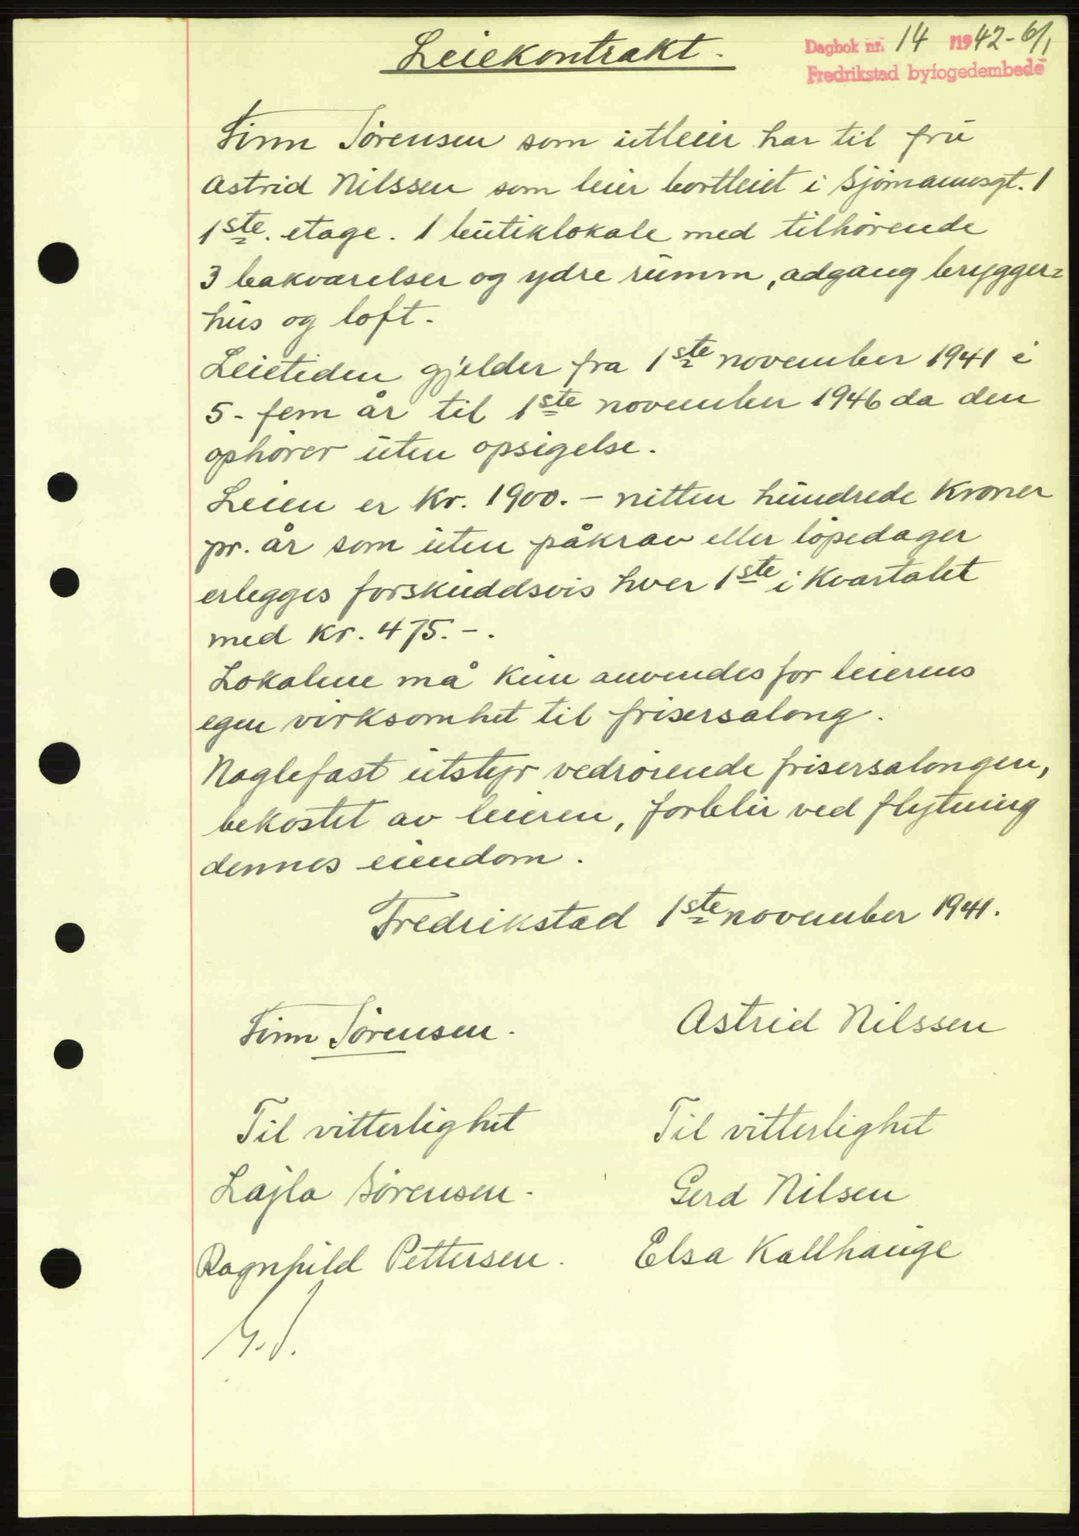 Leiekontrakt.
Dagbok nr. 14 /1942-6/1
Fredrikstad byfogedembede
Finn Sørensen som utleier har til fru
Astrid Nilssen som leier bortleiet i Sjømannsgt. 1
1ste. etage. 1 butiklokale med tilhørende
3 bakværelser og ydre rumm, adgang brygger=
hus og loft.
Leietiden gjelder fra 1ste november 1941 i
5- fem år til 1ste november 1946 da den
ophører uten opsigelse.
Leien er Kr. 1900.- nitten hundrede Kroner
pr. år som uten påkrav eller løpedager
erlegges forskuddsvis hver 1ste i Kvartalet
med Kr. 475.-.
Lokalene må kun anvendes for leierens
egen virksomhet til frisersalong.
Naglefast utstyr vedrørende frisersalongen,
bekostet av leieren, forblir ved flytning
dennes eiendom.
Fredrikstad 1ste november 1941.
Finn Sørensen.
Astrid Nilssen
Til vitterlighet
Til vitterlighet
Lajla Sørensen.
Gerd Nilsen
Ragnhild Pettersen.
Elsa Kallhauge